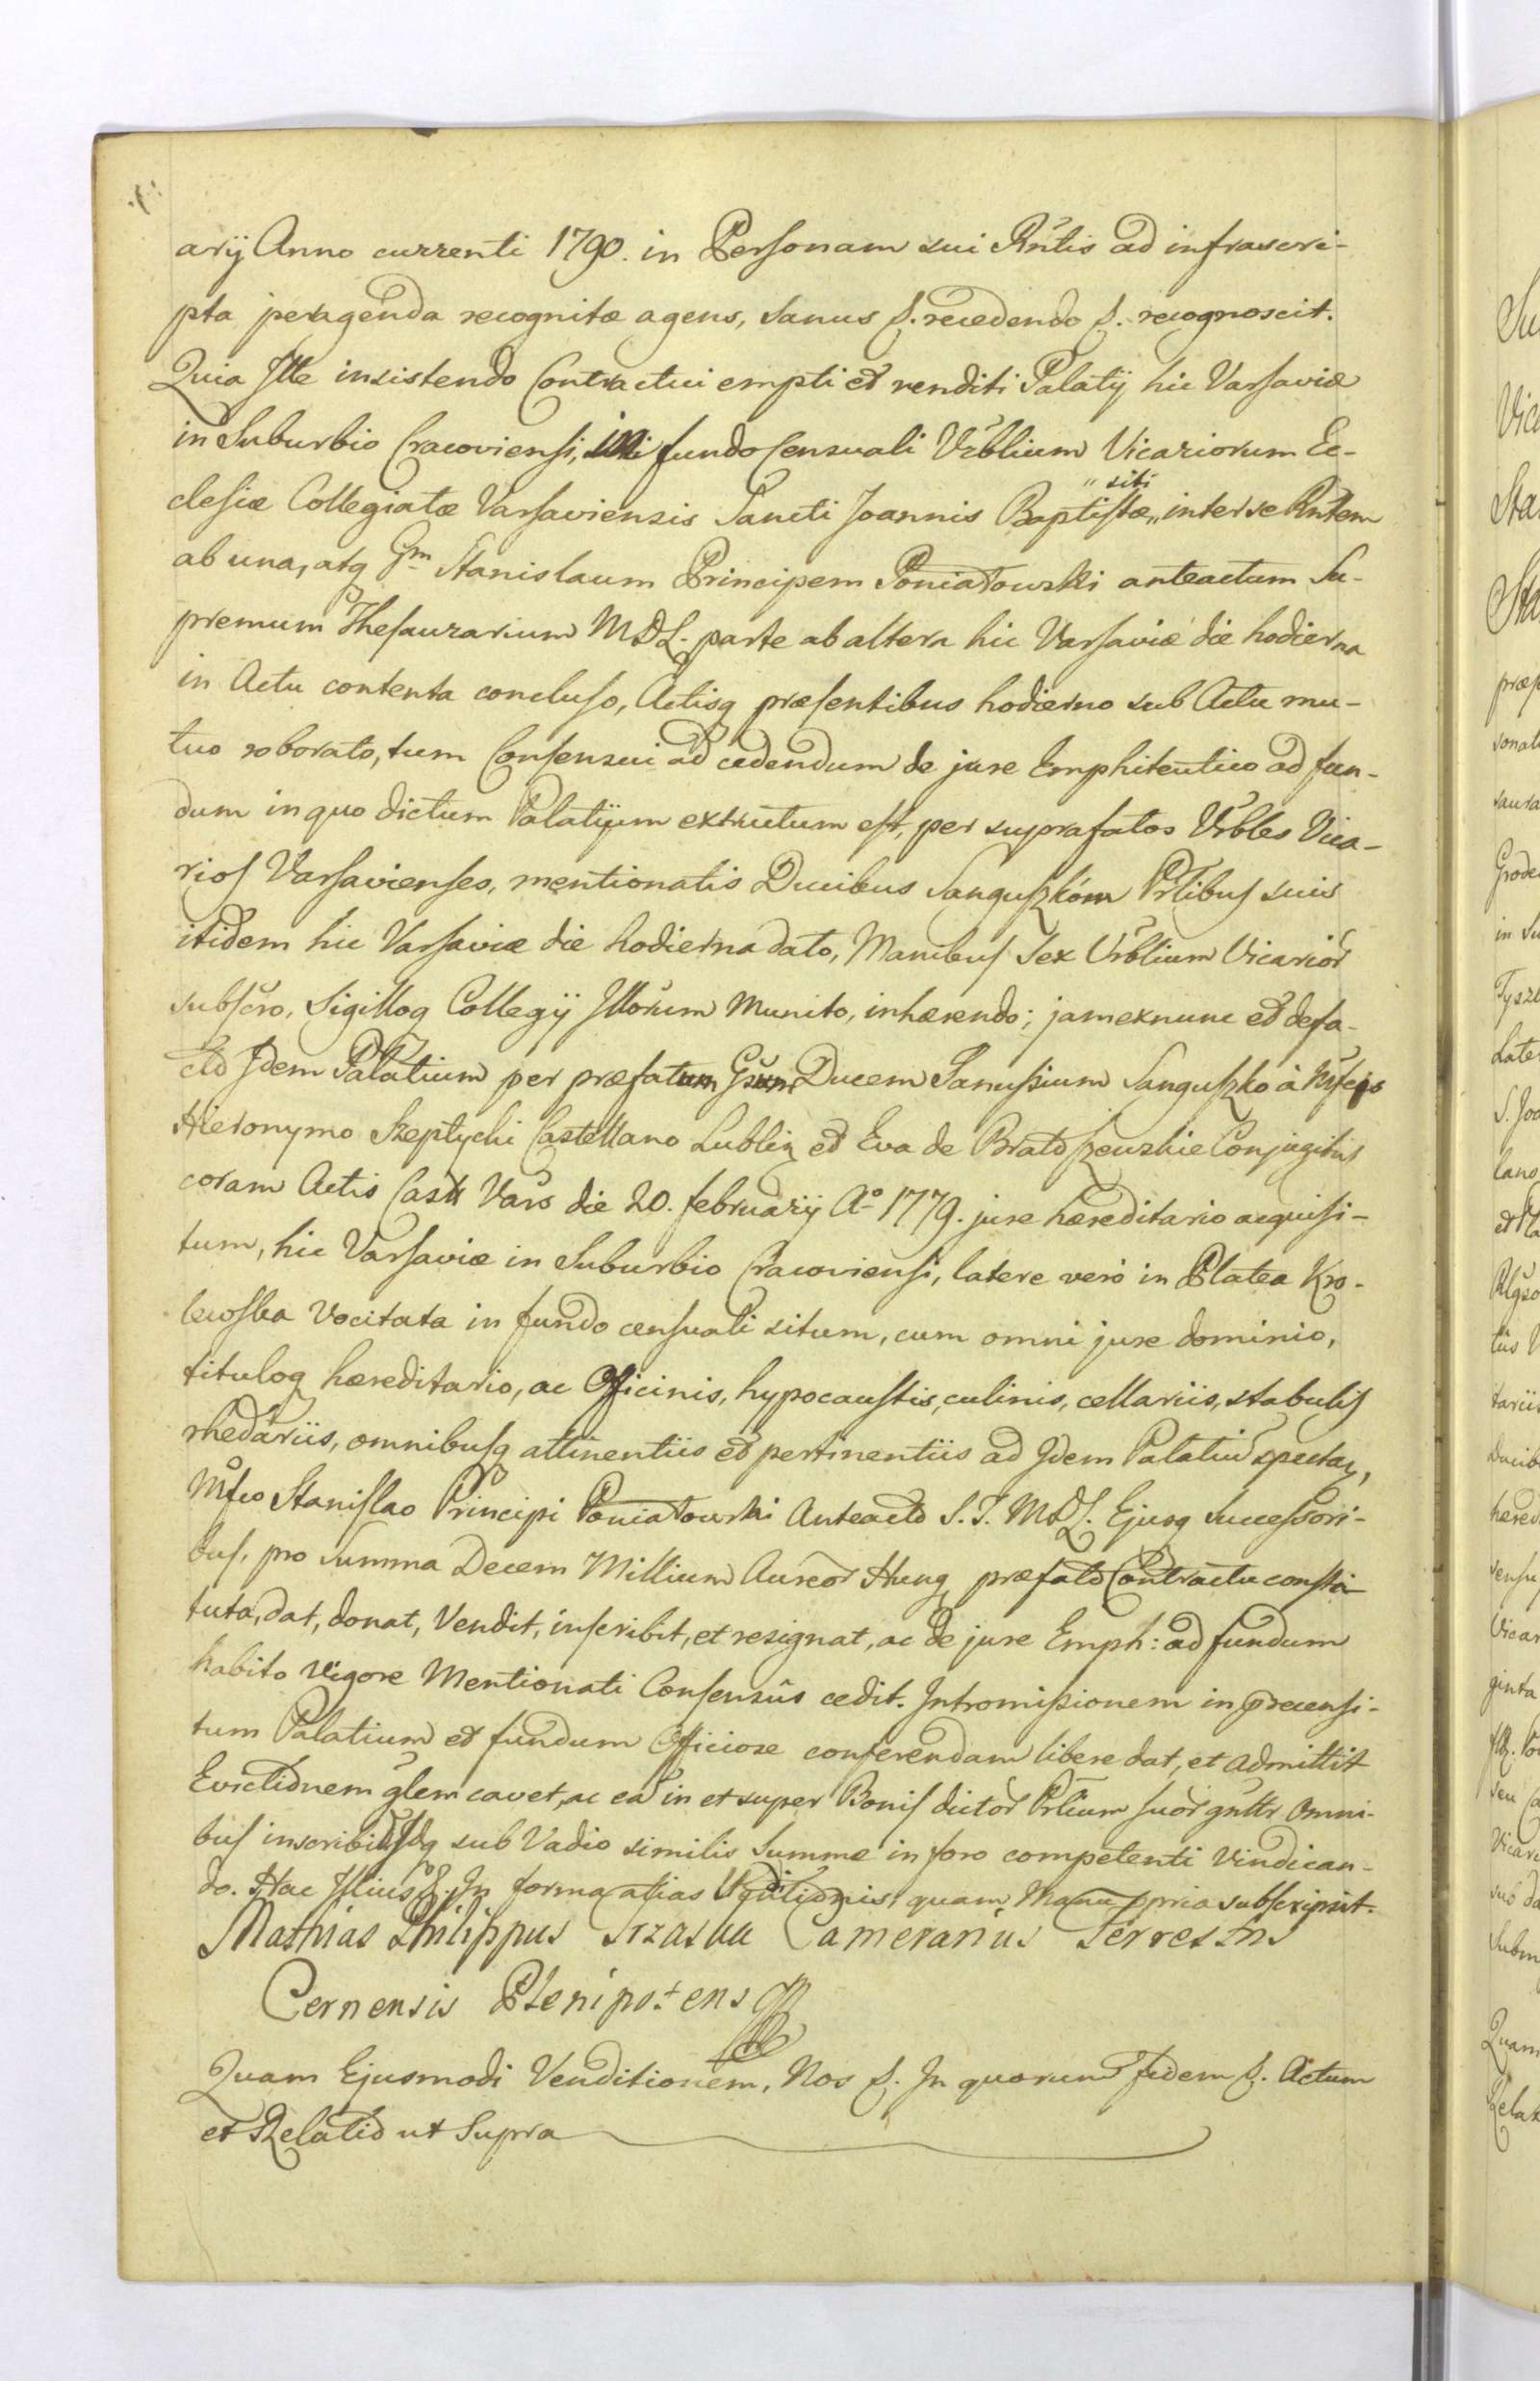 arij Anno currenti 1790. in Personam sui Rńtis ad infrascri-
pta peragenda recognitæ agens, sanus &. recedendo &. recognoscit.
Quia Ille insistendo Contractui empti et venditi Palatij hic Varsaviæ
in Suburbio Cracoviensi, in fundo Censuali Vrblium Vicariorum Ec-
clesiæ Collegiatæ Varsaviensis Sancti Joannis Baptistæ „ siti „ inter se Rntem
ab una, atq Gm Stanislaum Principem Poniatowski anteactum Su-
premum Thesaurarium MDL. parte ab altera hic Varsaviæ die hodierna
in Actu contenta concluso, Actisq præsentibus hodierno sub Actu mu-
tuo roborato, tum Consensui ad cedendum de jure Emphiteutico ad fun-
dum in quo dictum Palatijum extructum est, per suprafatos Vrbles Vica-
rios Varsavienses, mentionatis Ducibus Sanguszkóm Prlibus suis
itidem hic Varsaviæ die hodierna dato, Manibus Sex Vrblium Vicarior
subscro, Sigilloq Collegij Illorum Munito, inhærendo; jam exnunc et defa-
cto Idem Palatium per præfatum Gsum Ducem Janussium Sanguszko à Mfcis
Hieronymo Szeptycki Castellano Lublin et Eva de Bratoszewskie Conjugibus
coram Actis Castr Vars die 20. februarij Ao 1779. jure hæreditario acquisi-
tum, hic Varsaviæ in Suburbio Cracoviensi, latere verò in Platea Kro-
lewska Vocitata in fundo censuali situm, cum omni jure dominio,
tituloq hæreditario, ac Officinis, hypocaustis, culinis, cellariis, stabulis
rhedariis, omnibusq attinentiis et pertinentiis ad Idem Palatiu spectan,
Mfco Stanislao Principi Poniatowski Anteacto S. T. MDL. Ejusq Successori-
bus, pro Summa Decem Millium Aureor Hung præfato Contractu consti-
tuta, dat, donat, Vendit, inscribit, et resignat, ac de jure Emph: ad fundum
habito Vigore Mentionati Consensûs cedit. Intromissionem in præcensi-
tum Palatium et fundum Officiose conferendam libere dat, et admittit
Evictionem glem cavet, ac ea in et super Bonis dictor Prlium suor gnltr Omni-
bus inscribit, Idq sub Vadio similis Summæ in foro competenti Vindican-
do. Hac Illius &. In forma alias Venditionis, quam Manu ppria subscripsit.
Mathias Philippus Trzaska Camerarius Terrestris
Cernensis Plenipotens
Quam Ejusmodi Venditionem, Nos &. In quorum fidem &. Actum
et Relatio ut Supra